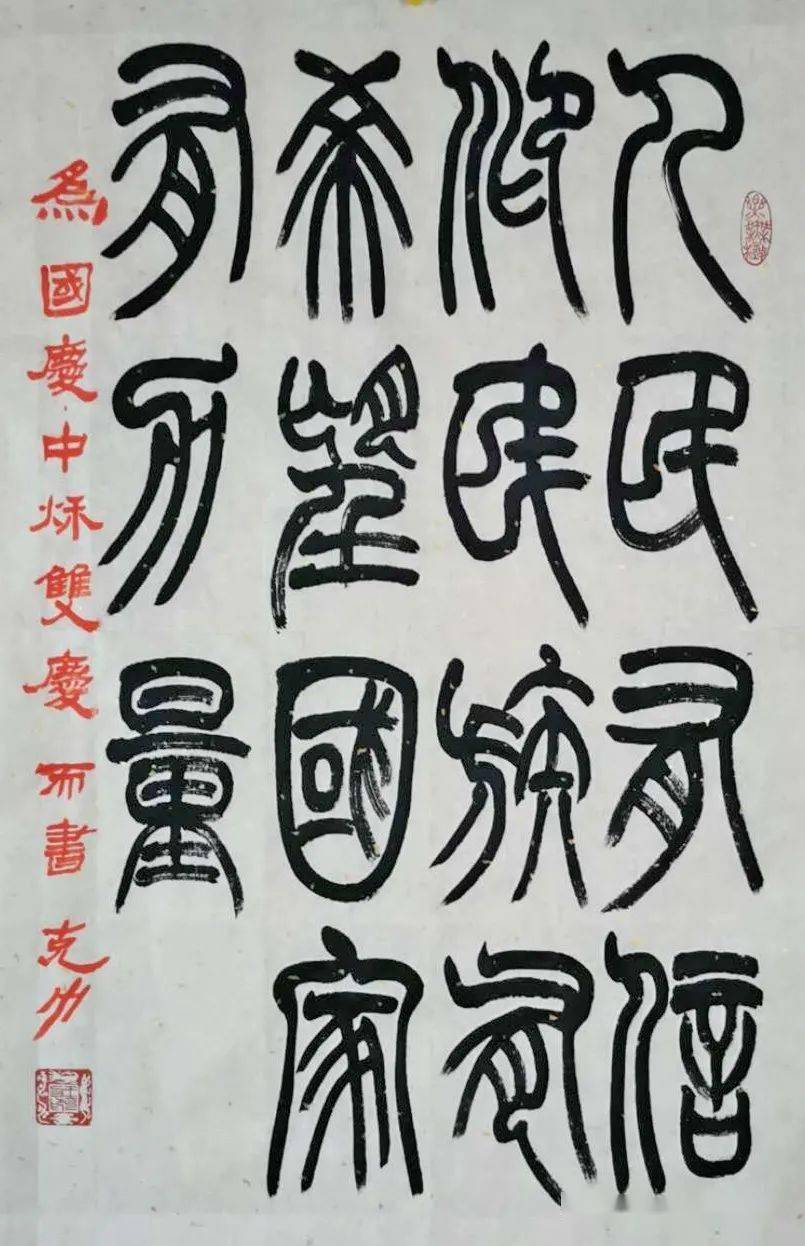 人民有信
仰民族有
希望國家
有力量
為國慶·中秌雙慶而書 克力